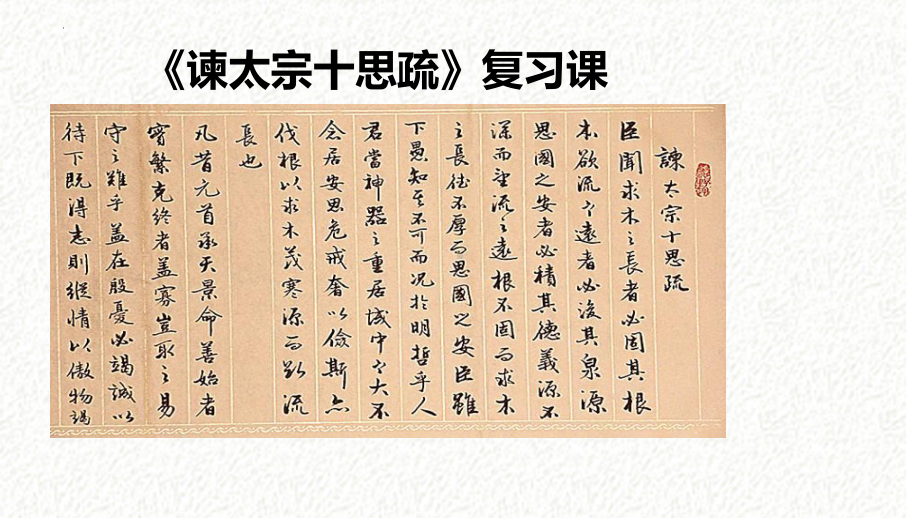 《谏太宗十思疏》复习课
諫太宗十思疏
臣聞求木之長者必固其根
本欲流之遠者必浚其泉源
思國之安者必積其德義源不
深而望流之遠根不固而求木
之長德不厚而思國之安臣雖
下愚知其不可而况於明哲乎人
君當神器之重居域中之大不
念居安思危戒奢以儉斯亦
伐根以求木茂塞源而欲流
長也
凡昔元首承天景命善始者
實繁克終者蓋寡豈取之易
守之難乎蓋在殷憂必竭誠以
待下既得志則縱情以傲物竭